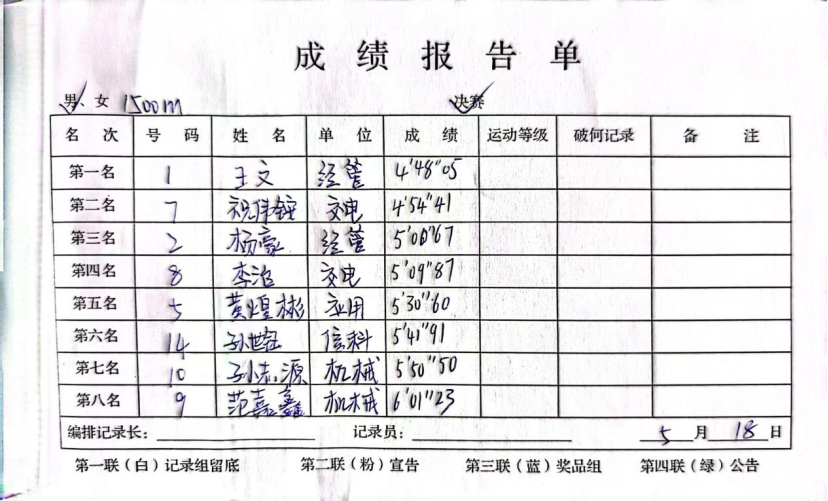 成绩报告单
男、女 1500m 决赛
名次 号码 姓名 单位 成绩 运动等级 破何记录 备注
第一名 1 王文 经管 4'48"05
第二名 7 交电 4'54"41
第三名 2 杨豪 经管 5'00"67
第四名 8 李治 交电 5'09"87
第五名 5 黄煌彬 应用 5'30"60
第六名 14 信科 5'41"91
第七名 10 孙志源 机械 5'50"50
第八名 9 范嘉鑫 机械 6'01"23
编排记录长： 记录员： 5月18日
第一联（白）记录组留底 第二联（粉）宣告 第三联（蓝）奖品组 第四联（绿）公告